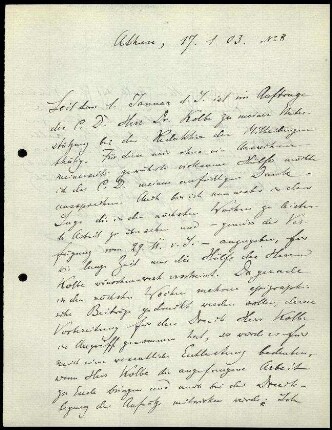 Athen, 17. 1. 03. No 8
Seit dem 1. Januar d. J. ist im Auftrage
der C. D. Herr Dr. Kolbe zu meiner Unter-
stützung bei der Redaktion der Mitteilungen
thätig. Für diese mir ohne ein Ansuchen
meinerseits gewährte wirksame Hülfe möchte
ich der C. D. meinen aufrichtigen Dank
aussprechen. Auch bin ich nunmehr in der
Lage die in den nächsten Wochen zu leisten-
de Arbeit zu übersehen und gemäss der Ver-
fügung vom 29. v. J. anzugeben, für
wie lange Zeit mir die Hülfe des Herrn
Kolbe wünschenswert erscheint. Da gerade
in den nächsten Wochen mehrere epigraphi-
sche Beiträge gedruckt werden sollen, deren
Vorbereitung für den Druck Herr Kolbe
in Angriff genommen hat, so würde es für
mich eine wesentliche Entlastung bedeuten,
wenn Herr Kolbe die angefangene Arbeit
zu Ende bringen und auch bei der Druck-
legung der Aufsätze mitwirken würde; Ich